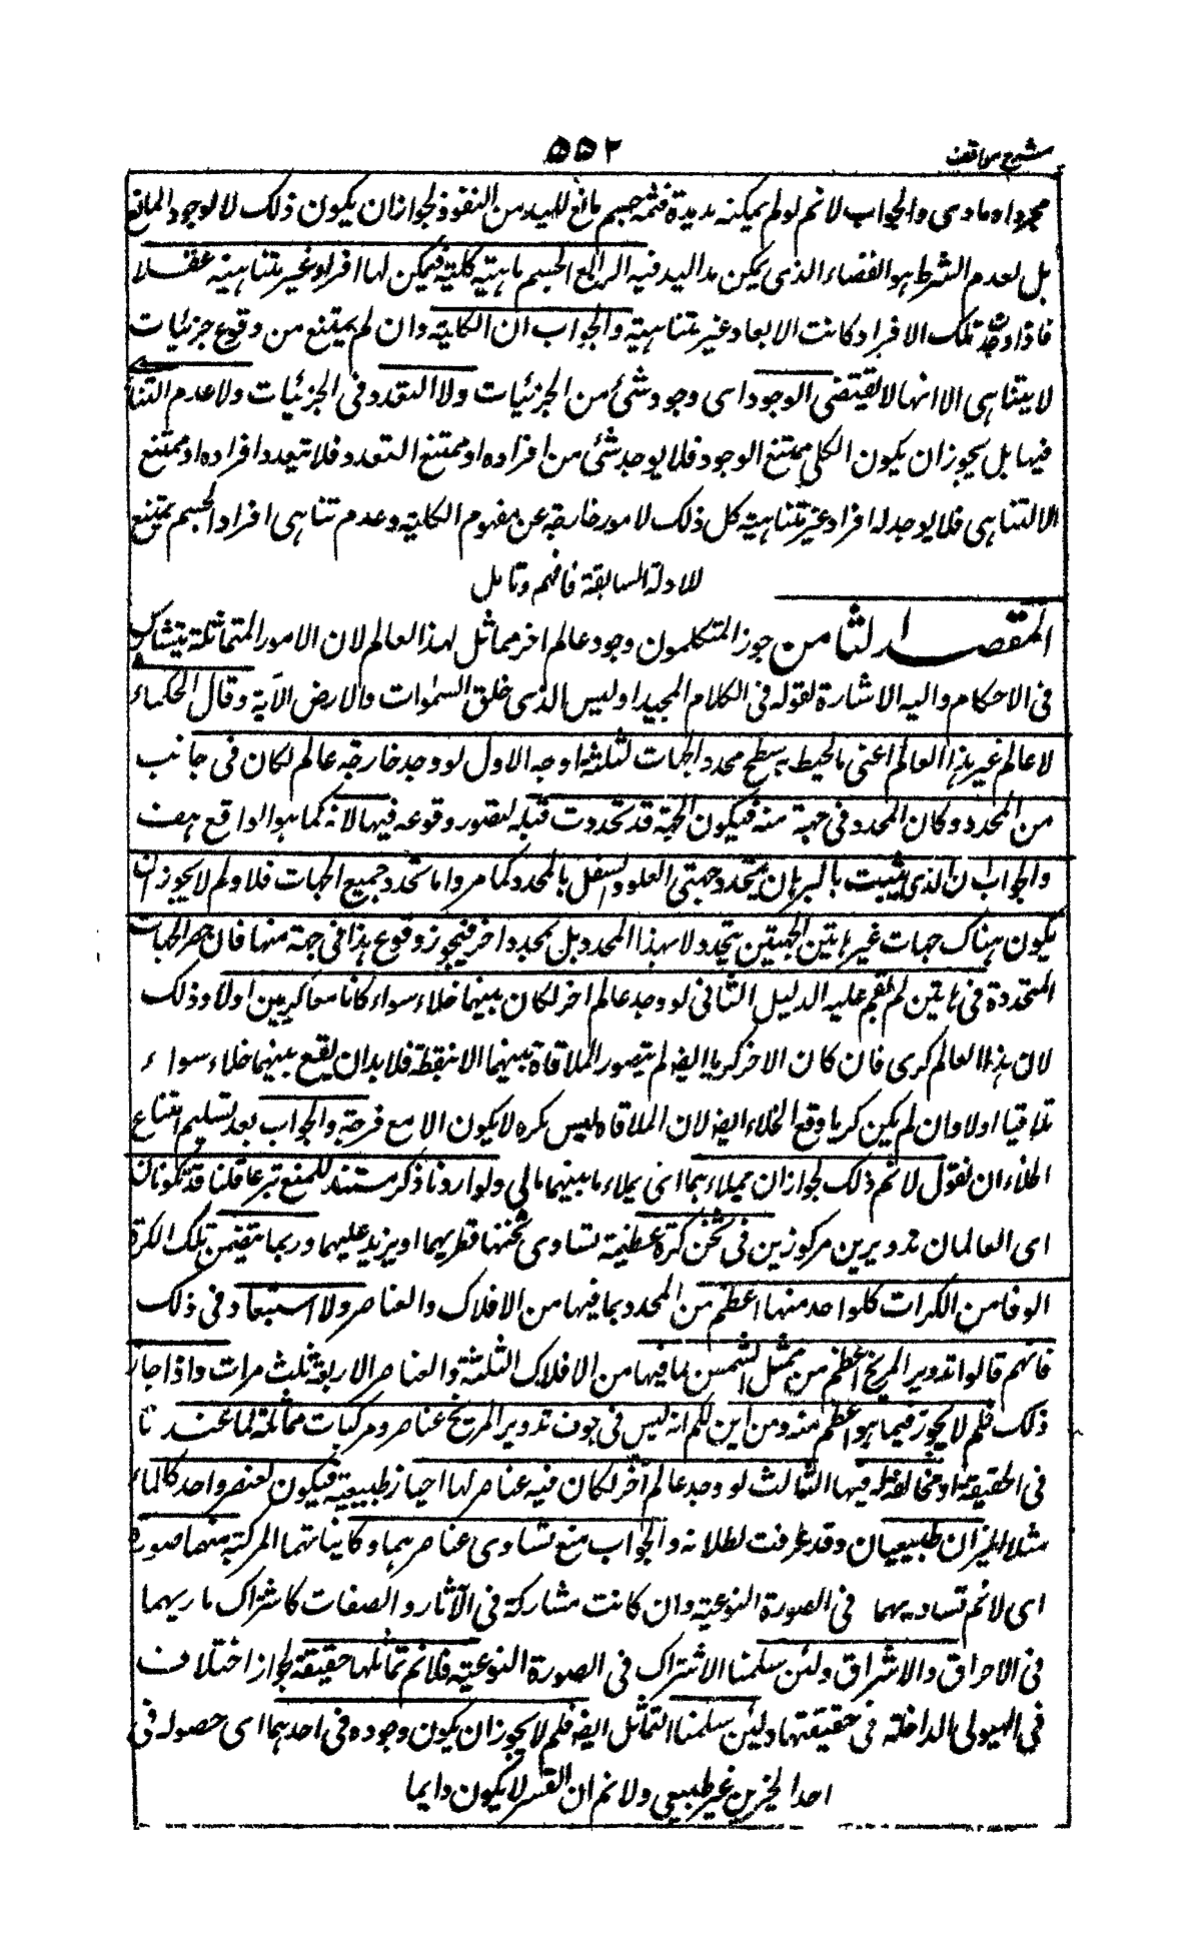 شرح مواقف
۵۵۲
مجردا و مادى والجواب لانم لو لم يمكنه مد يده فثمه جسم مانع لليد من النفوذ لجواز ان يكون ذلك لا لوجود المانع
بل لعدم الشرط هو الفضاء الذى يمكن مد اليد فيه الرابع الجسم ماهيته كلية فيمكن لها افراد غير متناهية عقلا
فاذا وجدت تلك الافراد كانت الابعاد غير متناهية والجواب ان الكلية وان لم يمتنع من وقوع جزئيات
لا يتناهى الا انها لا يقتضى الوجود اى وجود شئ من الجزئيات ولا التعدد فى الجزئيات ولا عدم التنا
فيها بل يجوز ان يكون الكلى ممتنع الوجود فلا يوجد شئ من افراده او ممتنع التعدد فلا يتعدد افراده او ممتنع
اللاتناهى فلا يوجد له افراد غير متناهية كل ذلك لامور خارجة عن مفهوم الكلية وعدم تناهى افراد الجسم يمتنع
للادلة السابقة فافهم وتامل
المقصد الثامن جوز المتكلمون وجود عالم اخر مماثل لهذا العالم لان الامور المتماثلة يتشارك
فى الاحكام واليه الاشارة لقوله فى الكلام المجيد اوليس الذى خلق السموات والارض الآية وقال الحكماء
لا عالم غير هذا العالم اعنى ما يحيط به سطح محدد الجهات لثلثة اوجه الاول لو وجد خارجه عالم لكان فى جانب
من المحدد وكان المحدد فى جهة منه فيكون الجهة قد تحددت قبله لتصور وقوعه فيها لانه كما هو الواقع هف
والجواب ان الذى يثبت بالبرهان يتحدد جهتى العلو والسفل بالمحدد كما مر واما تحدد جميع الجهات فلا ولم لا يجوز ان
يكون هناك جهات غير هاتين الجهتين يتحدد لا بهذا المحدد بل بمحدد اخر فيجوز وقوع هذا فى جهة منها فان حصر الجهات
المتحددة فى هاتين لم يقم عليه الدليل الثانى لو وجد عالم اخر لكان بينهما خلاء سواء كانا معا كريين اولا وذلك
لان هذا العالم كرى فان كان الاخر كريا ايضا لم يتصور الملاقاة بينهما الا بنقطة فلا بد ان يقع بينهما خلاء سواء
تلاقيا اولا وان لم يكن كريا وقع الخلاء ايضا لان الملاقاه ليس كره لا يكون الا مع فرجة والجواب بعد تسليم امتناع
الخلاء ان نقول لانم ذلك لجواز ان يملاءهما اى يملاء ما بينهما مالى ولو اردنا ذكر مستند للمنع تبرعا قلنا قد تكونان
اى العالمان تدويرين مركوزين فى ثخن كرة عظيمة تساوى ثخنها قطريهما او يزيد عليهما وربما يتضمن تلك الكرة
الوفا من الكرات كلواحد منها اعظم من المحدد بما فيها من الافلاك والعناصر ولا استبعاد فى ذلك
فانهم قالوا تدوير المريخ اعظم من ممثل الشمس بما فيها من الافلاك الثلثة والعناصر الاربعة ثلث مرات واذا جاز
ذلك فلم لا يجوز فيما هو اعظم منه ومن اين لكم انه ليس فى جوف تدوير المريخ عناصر ومركبات مماثلة لما عندنا
فى الحقيقة او مخالفة له فيها الثالث لو وجد عالم آخر لكان فيه عناصر لها احياز طبيعية فيكون لعنصر واحد كالماء
مثلا الحيزان طبيعيان وقد عرفت لطلانه والجواب منع تساوى عناصرهما وكايناتهما المركبة منهما صورة
اى لانم تساويهما فى الصورة النوعية وان كانت مشاركة فى الآثار والصفات كاشتراك ناريهما
فى الاحراق والاشراق ولئن سلمنا الاشتراك فى الصورة النوعية فلانم تماثلها حقيقة لجواز اختلاف
فى الهيولى الداخلة فى حقيقتها ولئن سلمنا التماثل ايضا فلم لا يجوز ان يكون وجوده فى احدهما اى حصوله فى
احد الحيزين غير طبيعى ولا نم ان القسر لا يكون دايما